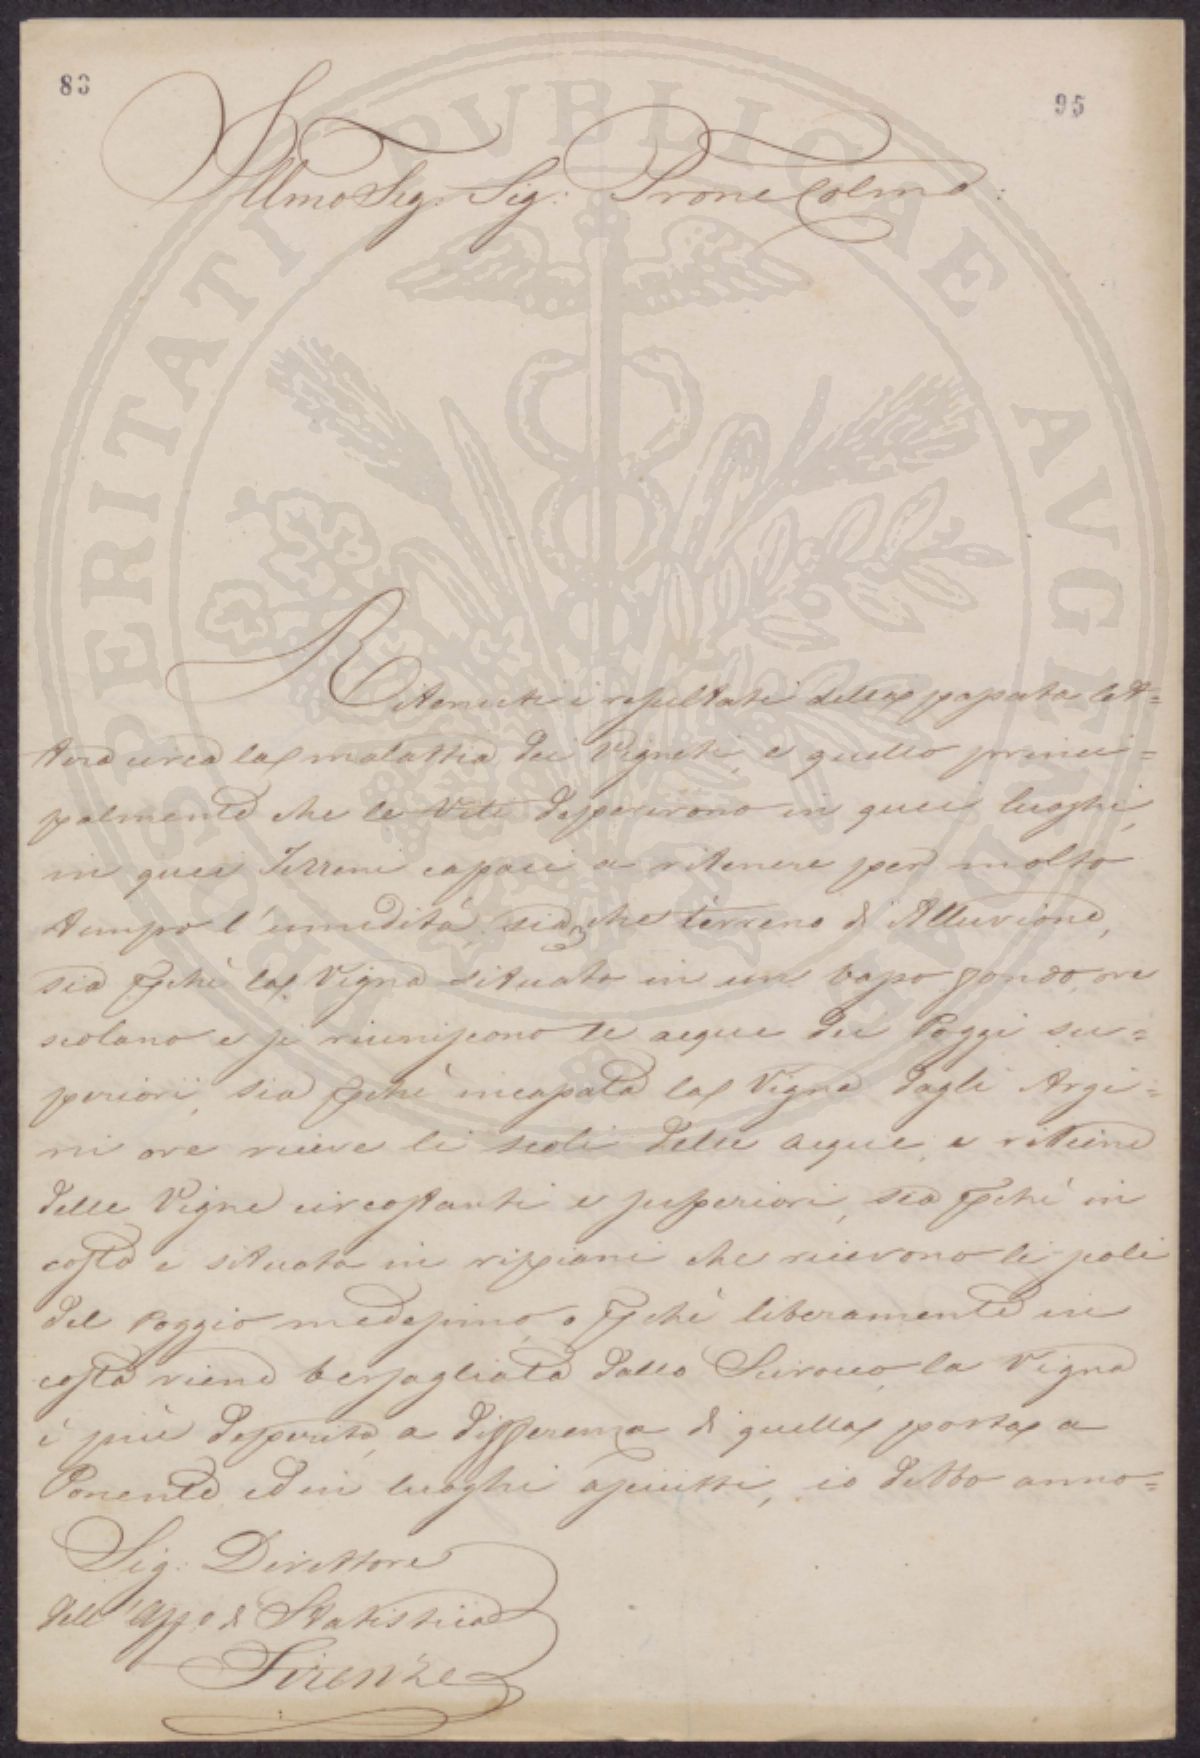 83
95
Illmo Sig: Sig: Prone Colmo:
Ritenuti i resultati della passata let=
tera circa la malattia dei Vigneti, e quello princi=
palmente che le Viti deperirono in quei luoghi,
in quei Terreni capaci a ritenere per molto
tempo l'umidità, sia che terreno di Alluvione,
sia pchè la Vigna situata in un basso fondo ove
scolano e si riuniscono le acque dei Poggi su=
periori, sia pchè incassata la Vigna dagli Argi=
ni ove riceve li scoli delle acque, e ritiene
delle Vigne circostanti e superiori, sia pchè in
costa e situata in ripiani che ricevono li scoli
del Poggio medesimo, o pchè liberamente in
costa viene bersagliata dallo Scirocco, la Vigna
è più deperita, a differenza di quella posta a
Ponente ed in luoghi asciutti, io debbo anno=
Sig: Direttore
dell' Uffo di Statistica
Firenze
PROSPERITATI PVBLICAE AVGENDAE